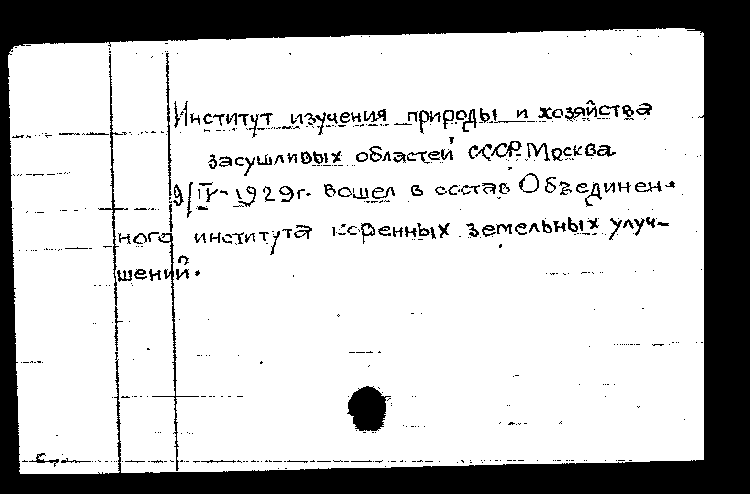 Институт изучения природы и хозяйства
засушливых областей СССР. Москва
9/IV-1929г. вошел в состав Объединен-
ного института коренных земельных улуч-
шений.